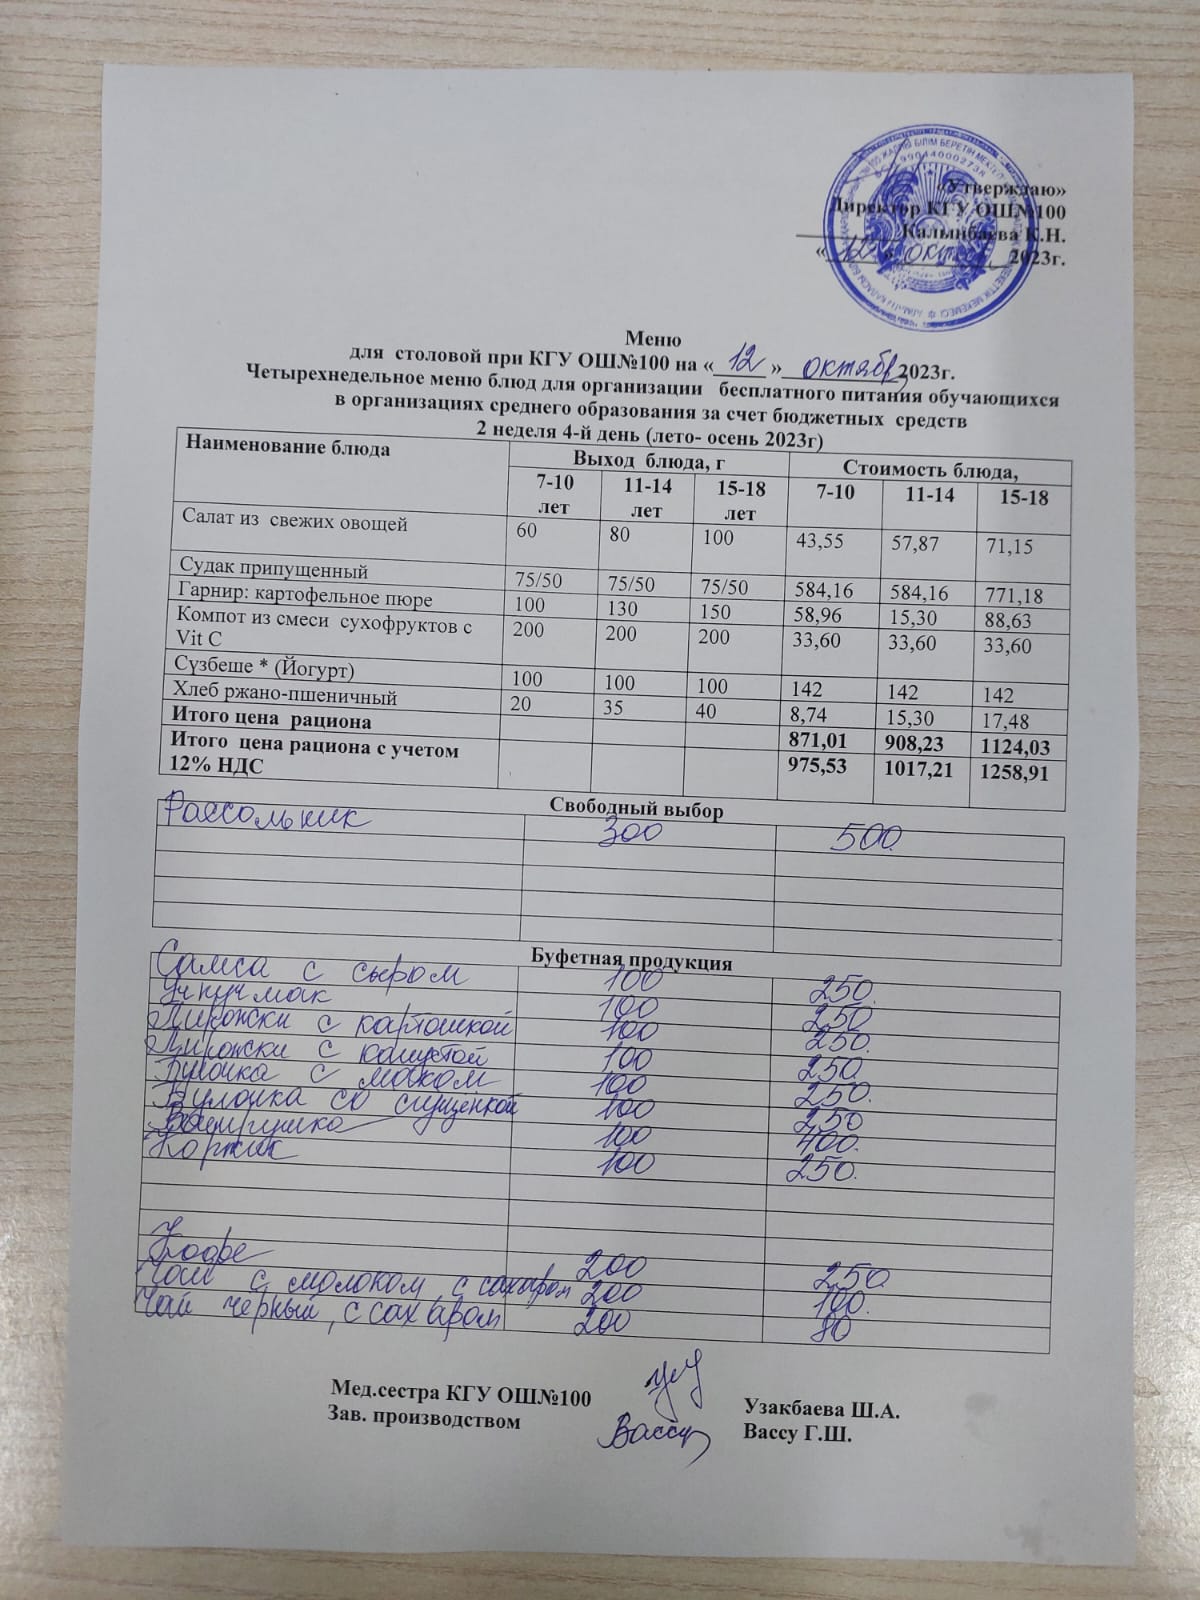 «Утверждаю»
Директор КГУ ОШ№100
Калынбаева К.Н.
«12» октяб 2023г.
Меню
для столовой при КГУ ОШ№100 на «12» октябр 2023г.
Четырехнедельное меню блюд для организации бесплатного питания обучающихся
в организациях среднего образования за счет бюджетных средств
2 неделя 4-й день (лето- осень 2023г)
Наименование блюда Выход блюда, г Стоимость блюда,
7-10 лет 11-14 лет 15-18 лет 7-10 11-14 15-18
Салат из свежих овощей 60 80 100 43,55 57,87 71,15
Судак припущенный 75/50 75/50 75/50 584,16 584,16 771,18
Гарнир: картофельное пюре 100 130 150 58,96 15,30 88,63
Компот из смеси сухофруктов с 200 200 200 33,60 33,60 33,60
Vit C
Сүзбеше * (Йогурт) 100 100 100 142 142 142
Хлеб ржано-пшеничный 20 35 40 8,74 15,30 17,48
Итого цена рациона 871,01 908,23 1124,03
Итого цена рациона с учетом 975,53 1017,21 1258,91
12% НДС
Свободный выбор
Рассольник 300 500.
Буфетная продукция
Самса с сыром 100 250.
Учпучмак 100 250.
Пирожки с картошкой 100 250.
Пирожки с капустой 100 250
Булочка с маком 100 250.
Булочка со сгущенкой 100 250
Ватрушка 100 400.
Коржик 100 250.
Кофе 200 250.
Чай с молоком, с сахаром 200 100.
Чай черный, с сахаром 200 80
Мед.сестра КГУ ОШ№100 Узакбаева Ш.А.
Зав. производством Вассу Вассу Г.Ш.